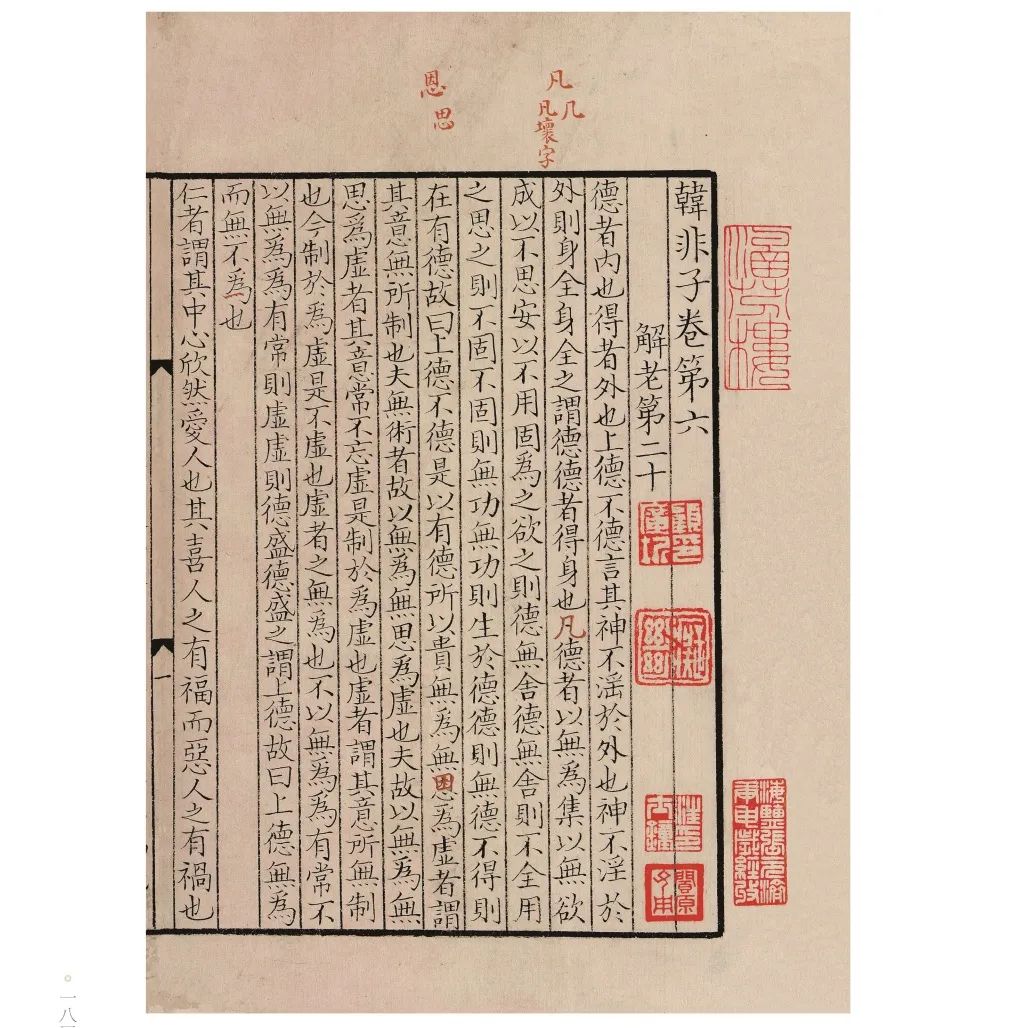 涵芬樓
海鹽張元濟
庚申歲經收
凡几
凡壞字
恩思
韓非子卷第六
顧印廣圻
汪印士鐘
閬源父用
解老第二十
德者內也得者外也上德不德言其神不滛於外也神不淫於
外則身全身全之謂德德者得身也凡德者以無爲集以無欲
成以不思安以不用固爲之欲之則德無舍德無舍則不全用
之思之則不固不固則無功無功則生於德德則無德不得則
在有德故曰上德不德是以有德所以貴無爲無恩爲虛者謂
其意無所制也夫無術者故以無爲無思爲虛也夫故以無爲無
思爲虛者其意常不忘虛是制於爲虛也虛者謂其意所無制
也今制於爲虛是不虛也虛者之無爲也不以無爲爲有常不
以無爲爲有常則虛虛則德盛德盛之謂上德故曰上德無爲
而無不爲也
仁者謂其中心欣然愛人也其喜人之有福而惡人之有禍也
一
一八